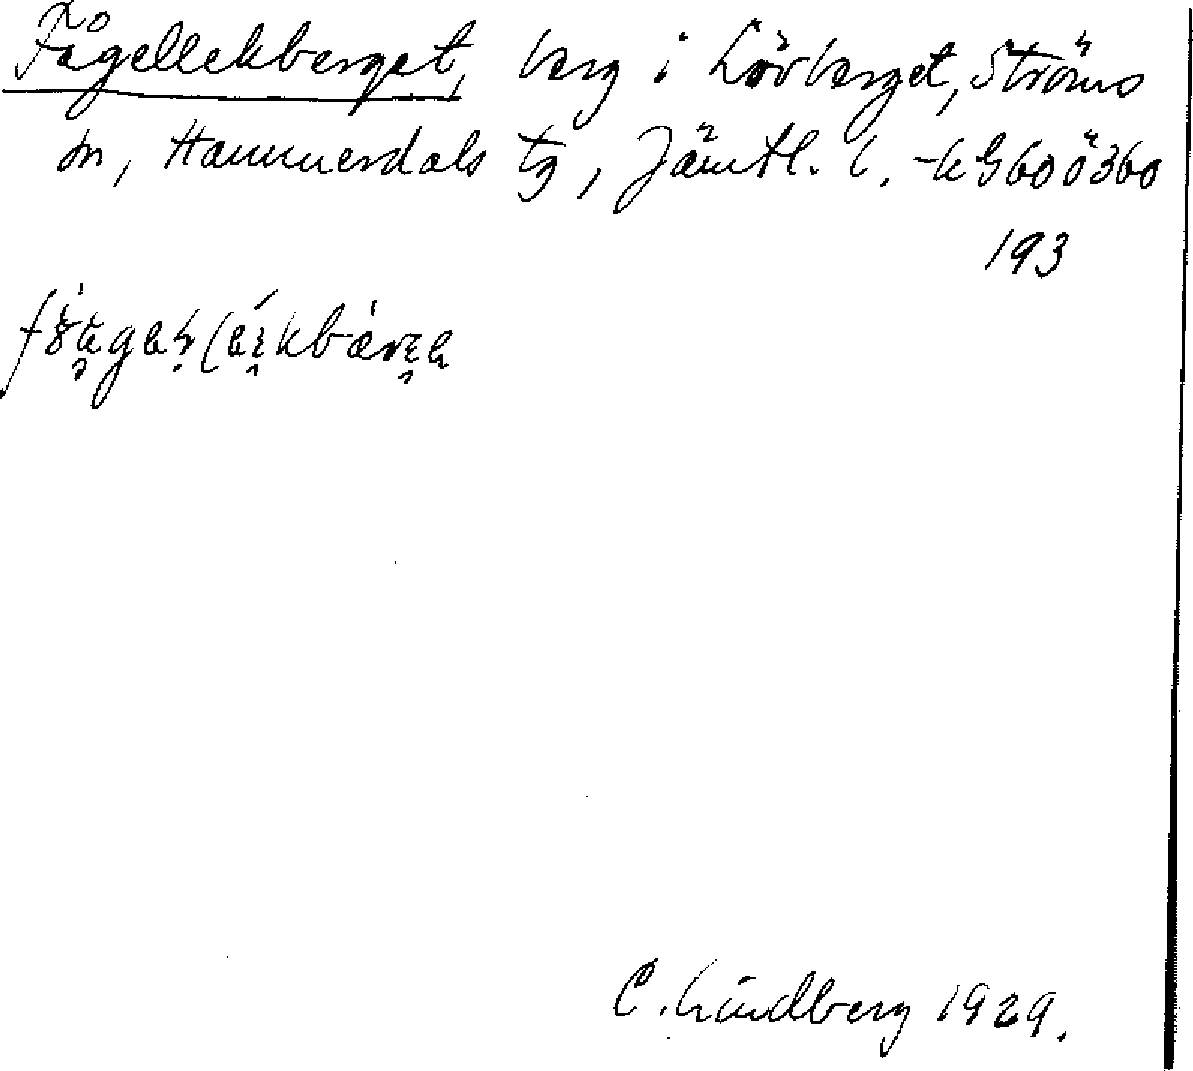 Fågellekberget, berg i Lövberget, Ströms
sn, Hammerdals tg, Jämtl. l. -k G60 ö360
193
C. Lindberg 1929.